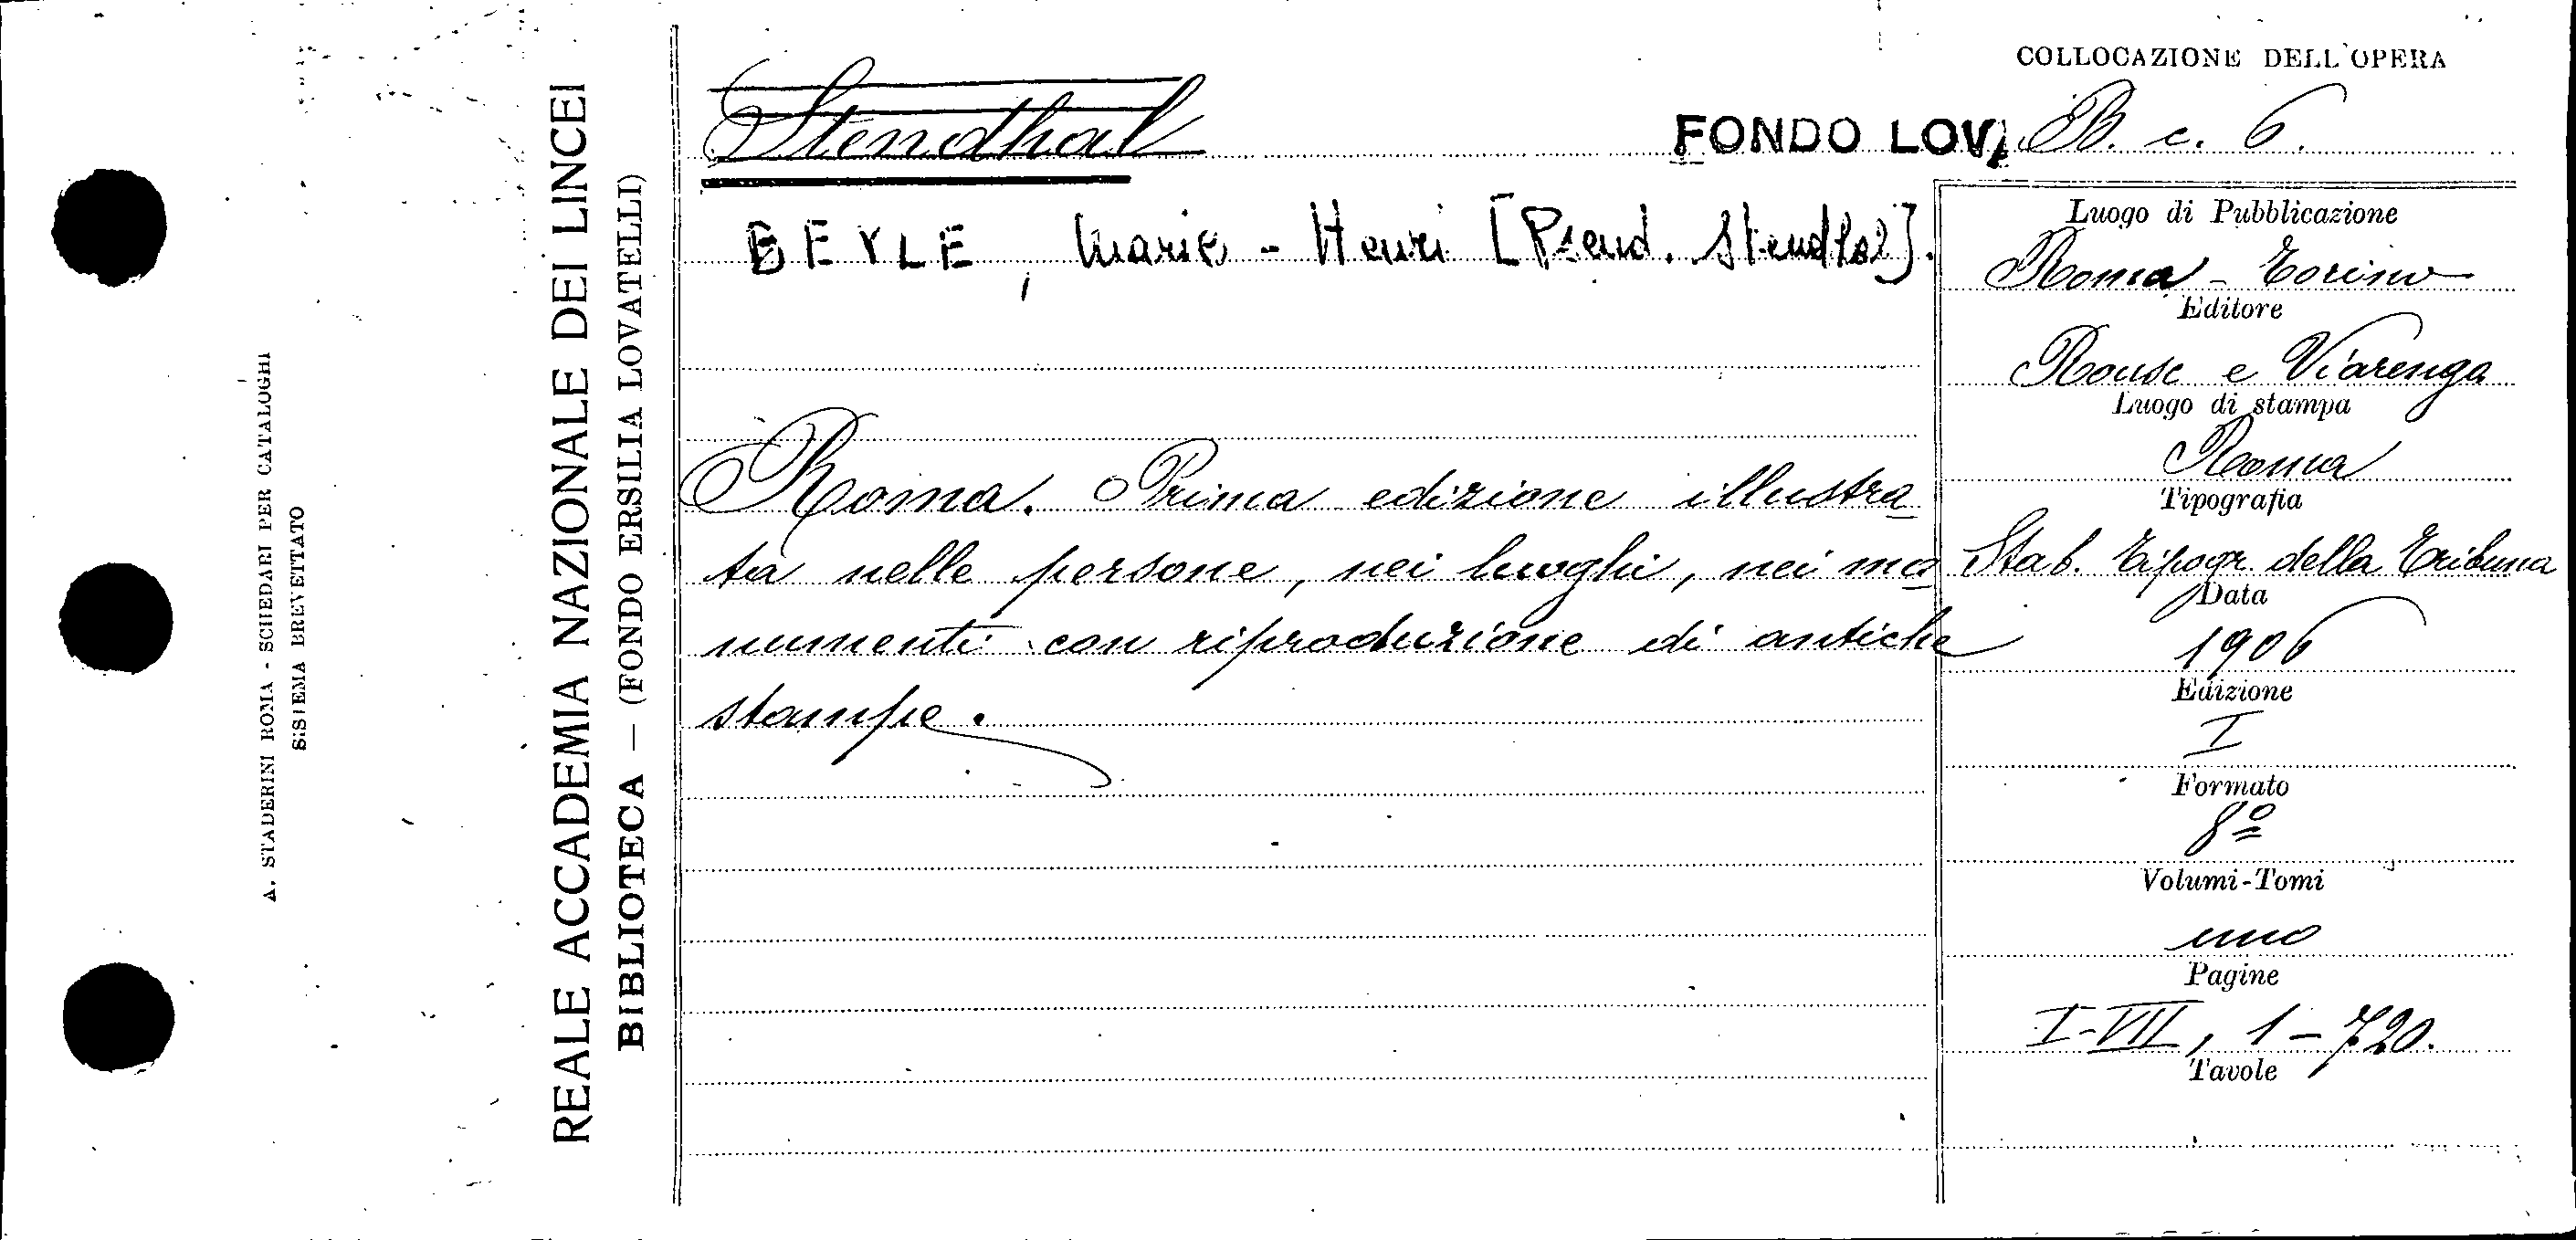 A. STADERINI ROMA - SCHEDARI PER CATALOGHI
SISTEMA BREVETTATO
REALE ACCADEMIA NAZIONALE DEI LINCEI
BIBLIOTECA — (FONDO ERSILIA LOVATELLI)
Stendhal
BEYLE, Marie-Henri [Pseud. Stendhal].
Roma. Prima edizione illustra
ta nelle persone, nei luoghi, nei mo
numenti con riproduzione di antiche
stampe.
COLLOCAZIONE DELL'OPERA
FONDO LOV. B. c. 6.
Luogo di Pubblicazione
Roma - Torino
Editore
Roux e Viarengo
Luogo di stampa
Roma
Tipografia
Stab. Tipogr. della Tribuna
Data
1906
Edizione
I
Formato
8º
Volumi-Tomi
uno
Pagine
I-VII, 1-720.
Tavole